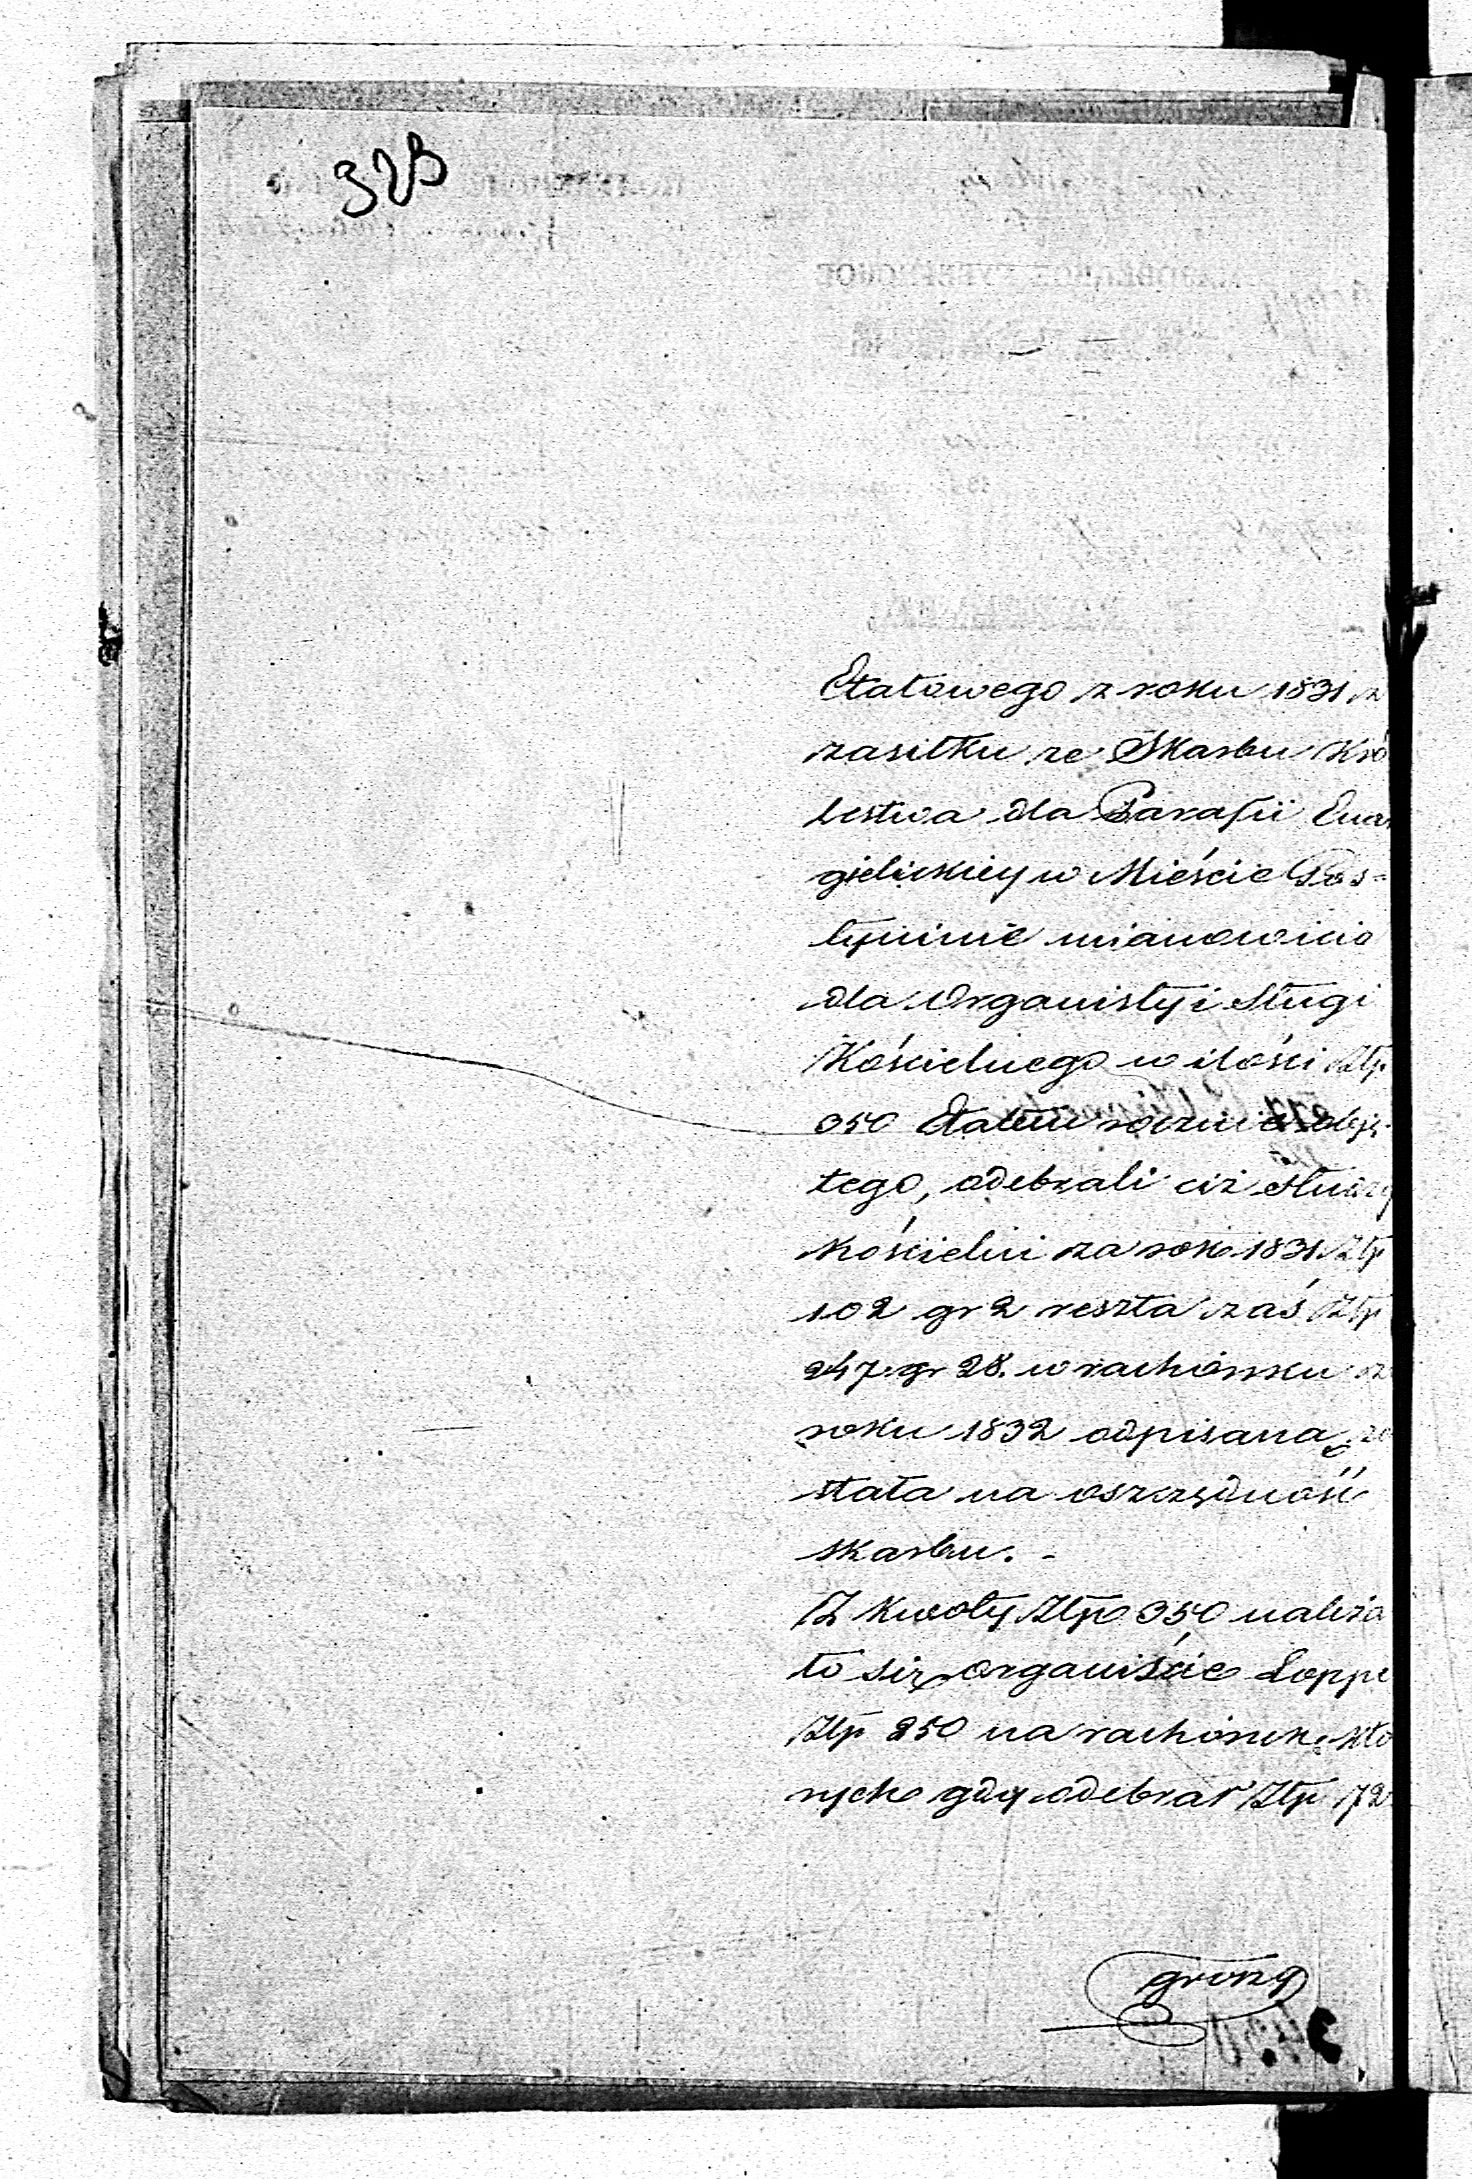 323
Etatowego z roku 1831 z
zasiłku ze Skarbu Kró
lestwa dla Parafii Ewan
gielickiey w Mieście Gos-
tyninie mianowicie
dla Organisty i Sługi
Kościelnego w ilości Złp
350 Etatem rocznie obję
tego, odebrali ciż słudzy
kościelni za rok 1831 Złp
102 gr 2 reszta zaś Złp
247 gr 28. w rachónku z
roku 1832 odpisana zo
stała na oszczędność
skarbu. -
Z kwoty Złp 350 należa
ło się organiście Loppe
Złp 250 na rachónek któ
rych gdy odebrał Złp 72
groszy